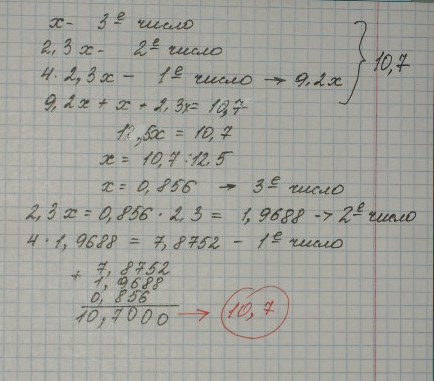 x - 3е число
2,3x - 2е число
4·2,3x - 1е число → 9,2x
10,7
9,2x + x + 2,3x = 10,7
12,5x = 10,7
x = 10,7 : 12.5
x = 0,856 → 3е число
2,3x = 0,856 · 2,3 = 1,9688 → 2е число
4 · 1,9688 = 7,8752 - 1е число
+ 7,8752
1,9688
0,856
10,7000 → 10,7